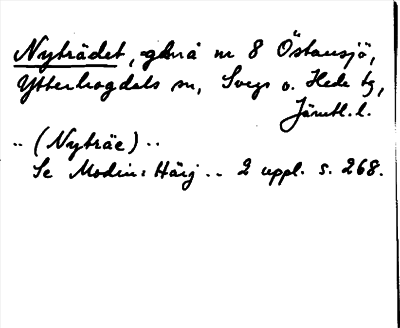 Nyträdet, gdnå nr 8 Östansjö,
Ytterhogdals sn, Svegs o. Hede tg,
Jämtl. l.
.. (Nyträe) ..
Se Modin: Härj .. 2 uppl. s. 268.